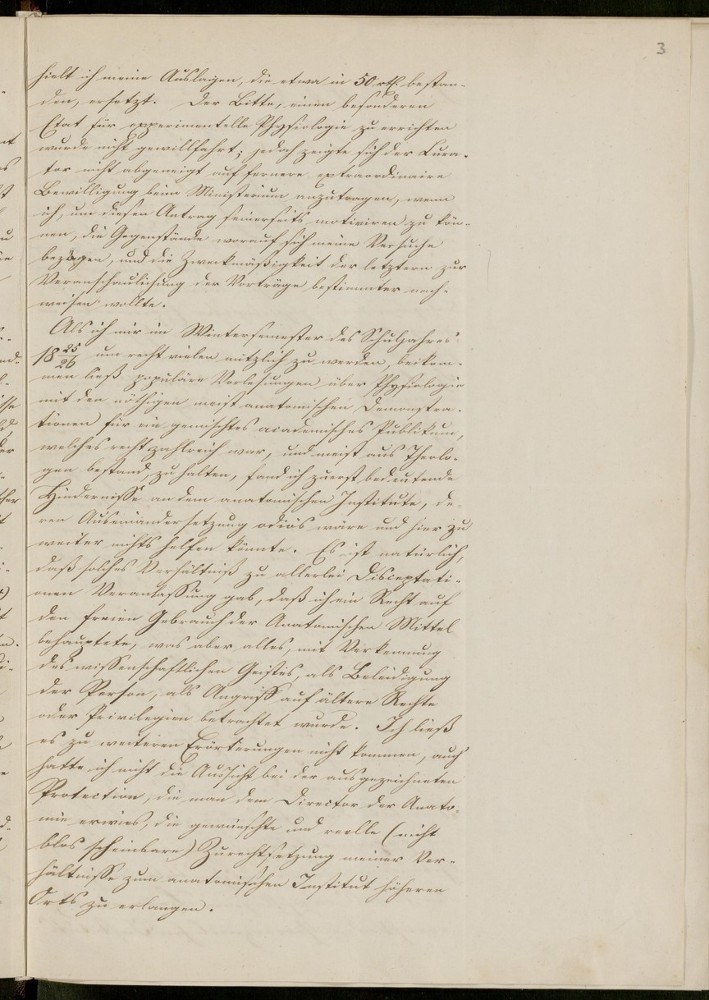 3
hielt ich meine Auslagen, die etwa in 50 rth. bestan-
den, ersetzt. Der Bitte, einen besonderen
Etat für experimentelle Physiologie zu errichten
wurde nicht gewillfahrt; jedoch zeigte sich der Cura-
tor nicht abgeneigt auf fernere extraordinaire
Bewilligung beim Ministerium anzutragen, wenn
ich, um diesen Antrag seinerseits motiviren zu kön-
nen, die Gegenstände worauf sich meine Versuche
bezögen, und die Zweckmäßigkeit der letztern zur
Veranschaulichung der Vorträge bestimmter nach-
weisen wollte.
Als ich mir im Wintersemester des Schuljahres
18 25/26 um recht vielen nützlich zu werden, beikom-
men ließ populäre Vorlesungen über Physiologie
mit den nöthigen meist anatomischen Demonstra-
tionen für ein gemischtes academisches Publikum,
welches recht zahlreich war, und meist aus Theolo-
gen bestand, zu halten, fand ich zuerst bedeutende
Hindernisse an dem anatomischen Institute, de-
ren Auseinandersetzung odiös wäre und hier zu
weiter nichts helfen könnte. Es ist natürlich,
daß solches Verhältniß zu allerlei Disceptati-
onen Veranlassung gab, daß ich ein Recht auf
den freien Gebrauch der Anatomischen Mittel
behauptete, was aber alles, mit Verkennung
des wissenschaftlichen Geistes, als Beleidigung
der Person, als Angriff auf ältere Rechte
oder Privilegien betrachtet wurde. Ich ließ
es zu weiteren Erörterungen nicht kommen, auch
hatte ich nicht die Aussicht bei der ausgezeichneten
Protection, die man dem Director der Anato-
mie erwies, die gewünschte und reelle (nicht
blos scheinbare) Zurechtsetzung meiner Ver-
hältnisse zum anatomischen Institut höheren
Orts zu erlangen.